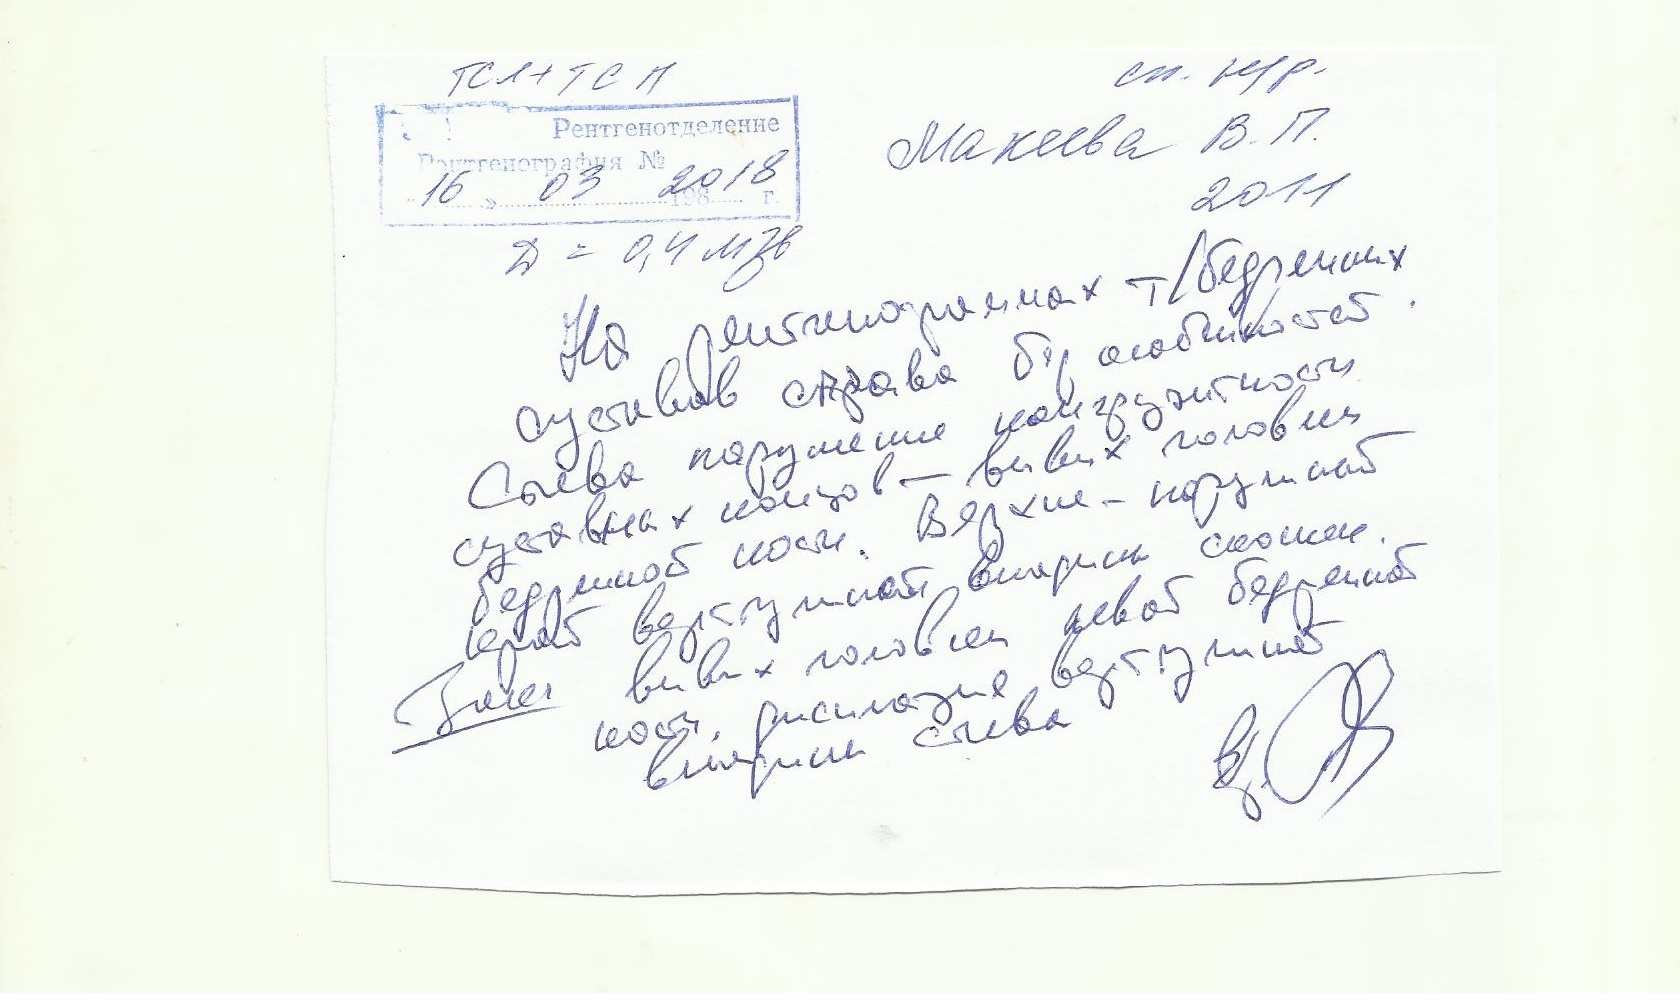 ТСЛ+ТСП
сп. н/р.
Рентгенотделение
Рентгенография №
"16" 03 2018 198 г.
Макеева В.П.
2011
Д = 0,4 мЗв
На рентгенограммах т/бедренных
суставов справа б/з особенностей.
Слева нарушение конгруэнтности
суставных концов – вывих головки
бедренной кости. Верхне-наружный
край вертлужной впадины скошен.
Закл вывих головки левой бедренной
кости, дисплазия вертлужной
впадины слева
Вр.